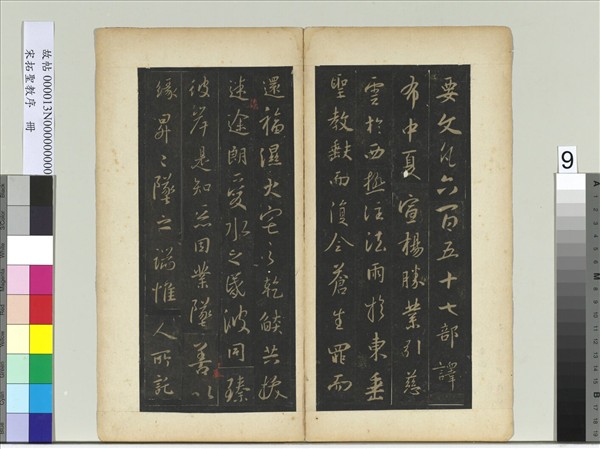 要文凡六百五十七部譯
布中夏宣揚勝業引慈
雲於西極注法雨於東垂
聖教缺而復全蒼生罪而
還福濕火宅之乾焰共拔
迷途朗愛水之昏波同臻
彼岸是知惡因業墜善以
緣昇〻墜之端惟人所託
故帖 000013N000000000
宋拓聖教序 冊
9